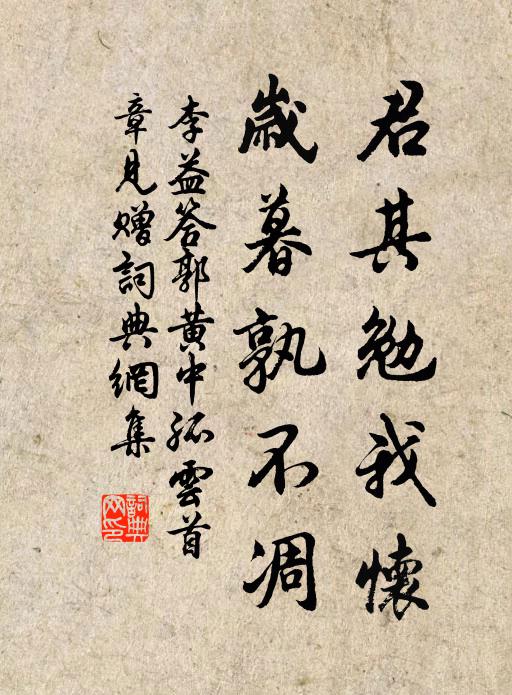 君其勉我懷
歲暮孰不凋
李益答郭黃中孤雲首
章見贈詞典網集
詞典
网印